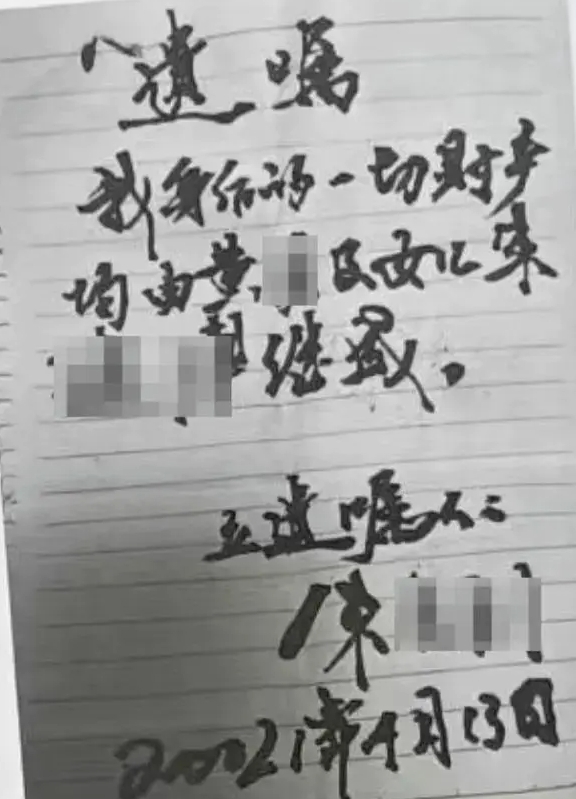 遗嘱
我身后 一切财产
均由黄 及女儿
继承。
立遗嘱人:
陈
20021年4月13日